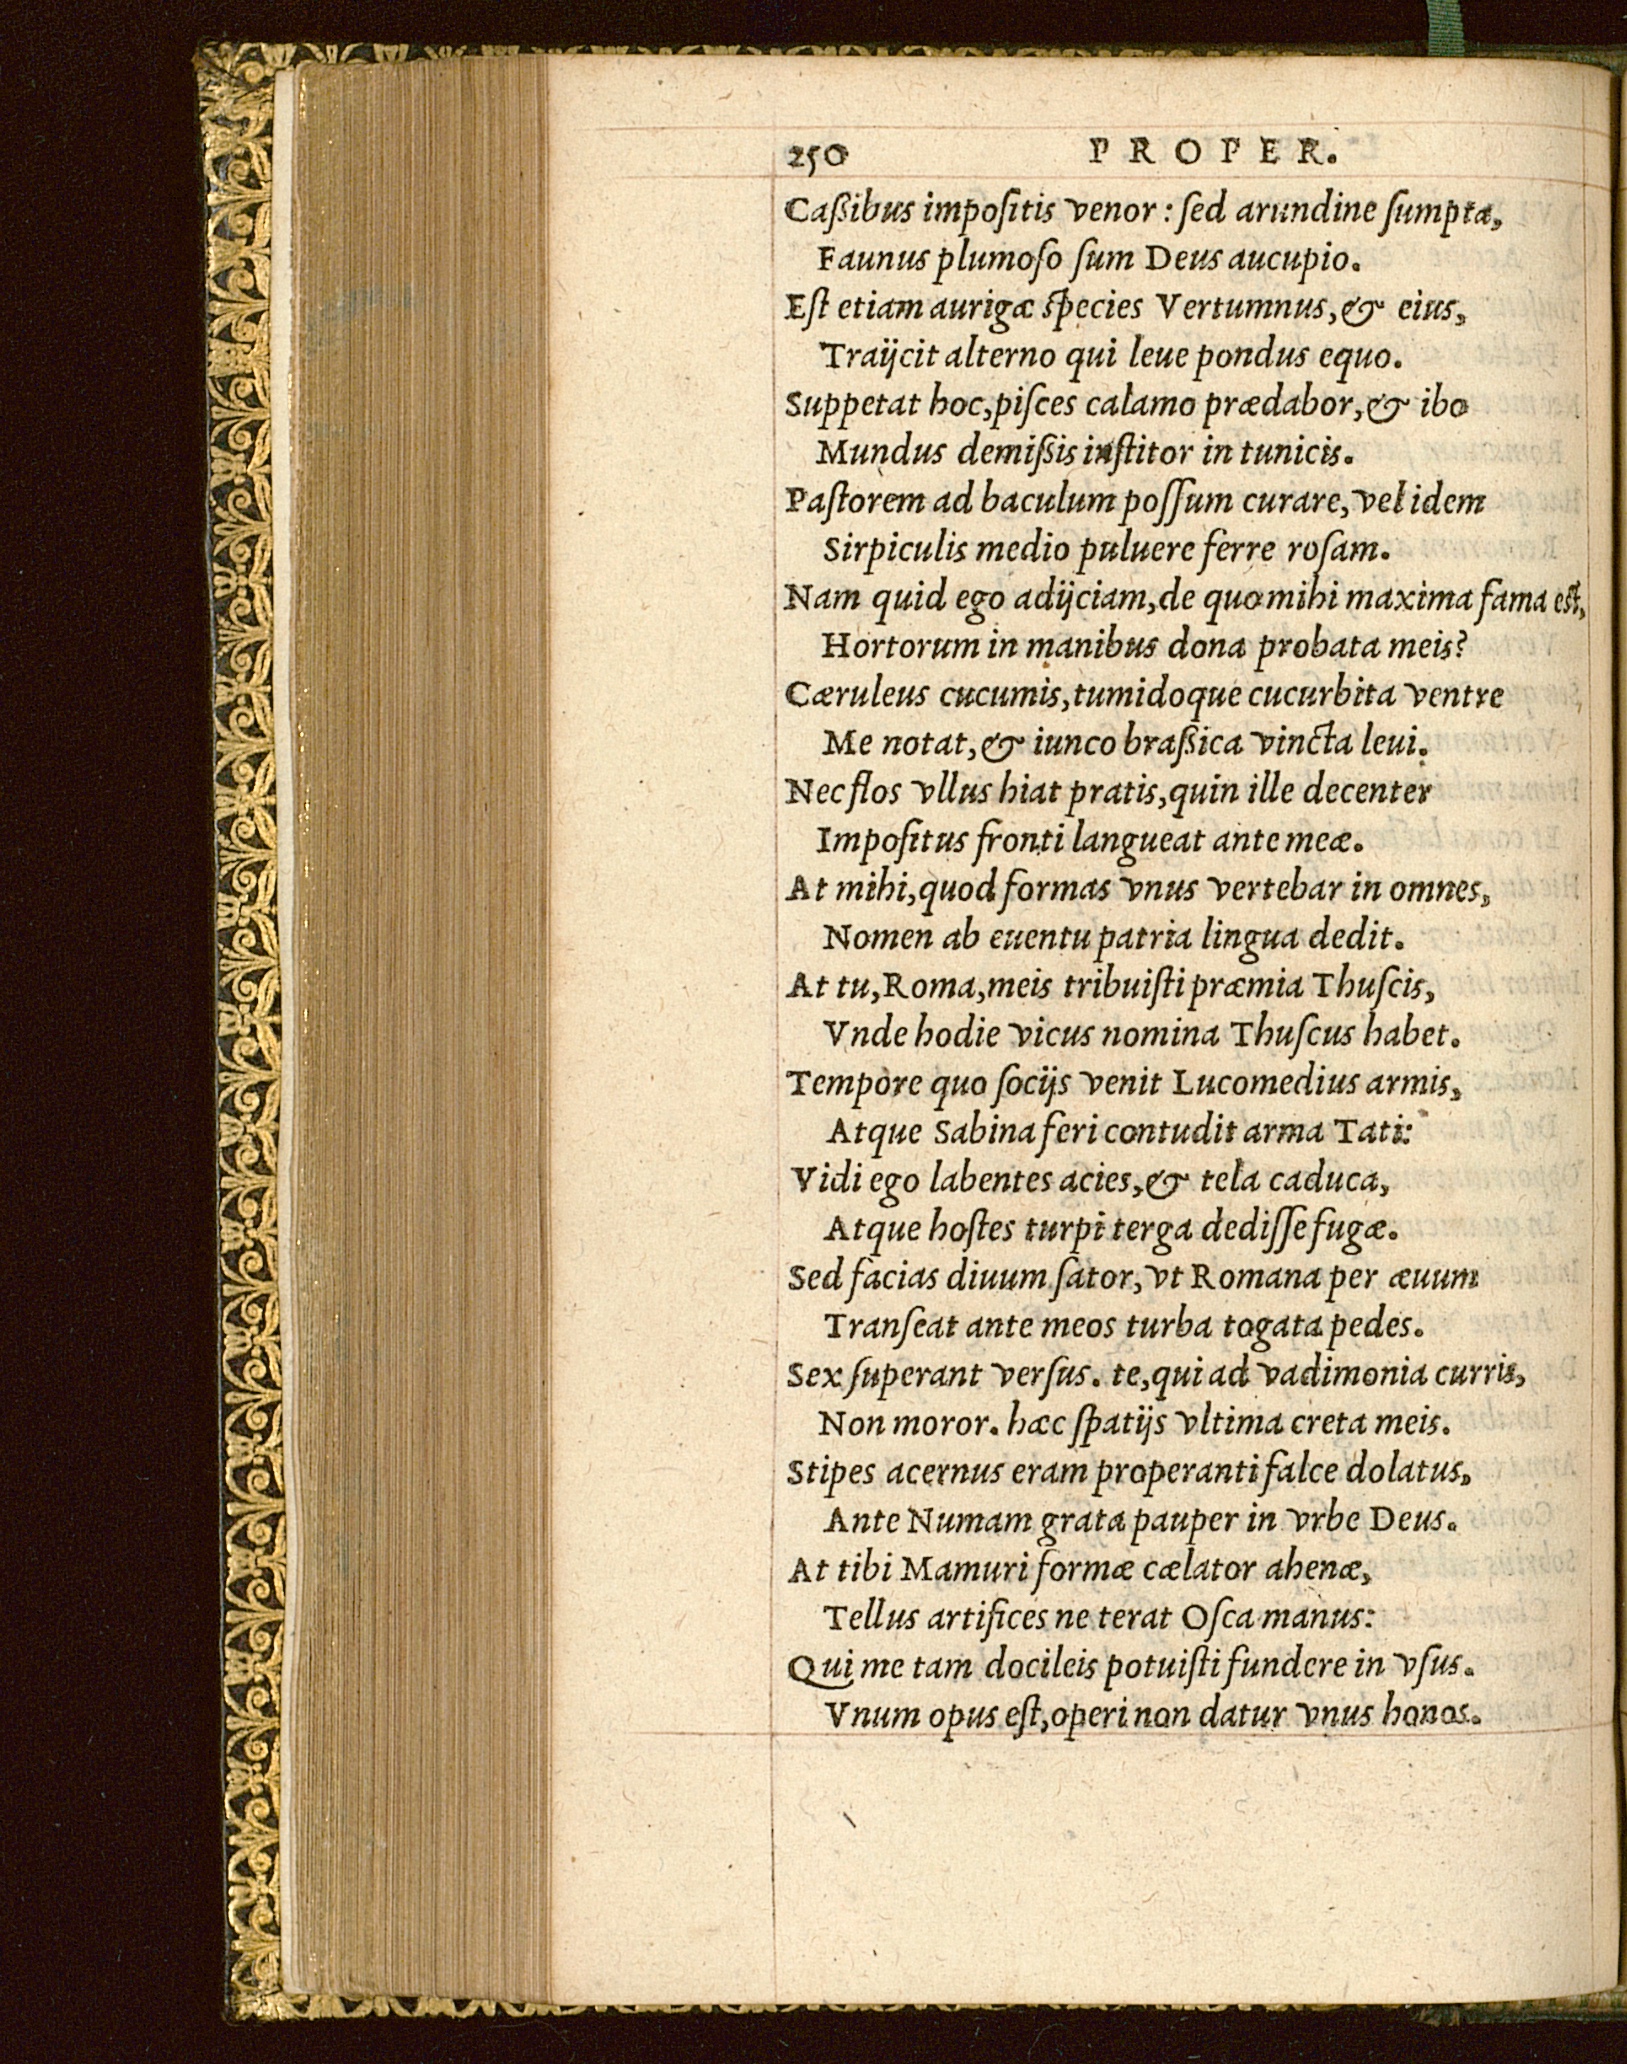 250 PROPER.
Caßibus impoſitis venor : ſed arundine ſumpta,
Faunus plumoſo ſum Deus aucupio.
Eſt etiam aurigæ ſpecies Vertumnus, & eius,
Traijcit alterno qui leue pondus equo.
Suppetat hoc, piſces calamo prædabor, & ibo
Mundus demißis inſtitor in tunicis.
Paſtorem ad baculum poſſum curare, vel idem
Sirpiculis medio puluere ferre roſam.
Nam quid ego adijciam, de quo mihi maxima fama eſt,
Hortorum in manibus dona probata meis?
Cæruleus cucumis, tumidoque cucurbita ventre
Me notat, & iunco braßica vincta leui.
Nec flos vllus hiat pratis, quin ille decenter
Impoſitus fronti langueat ante meæ.
At mihi, quod formas vnus vertebar in omnes,
Nomen ab euentu patria lingua dedit.
At tu, Roma, meis tribuiſti præmia Thuſcis,
Vnde hodie vicus nomina Thuſcus habet.
Tempore quo ſocijs venit Lucomedius armis,
Atque Sabina feri contudit arma Tati:
Vidi ego labentes acies, & tela caduca,
Atque hoſtes turpi terga dediſſe fugæ.
Sed facias diuum ſator, vt Romana per æuum
Tranſeat ante meos turba togata pedes.
Sex ſuperant verſus. te, qui ad vadimonia curris,
Non moror. hæc ſpatijs vltima creta meis.
Stipes acernus eram properanti falce dolatus,
Ante Numam grata pauper in vrbe Deus.
At tibi Mamuri formæ cælator ahenæ,
Tellus artifices ne terat Oſca manus:
Qui me tam docileis potuiſti fundere in vſus.
Vnum opus eſt, operi non datur vnus honos.